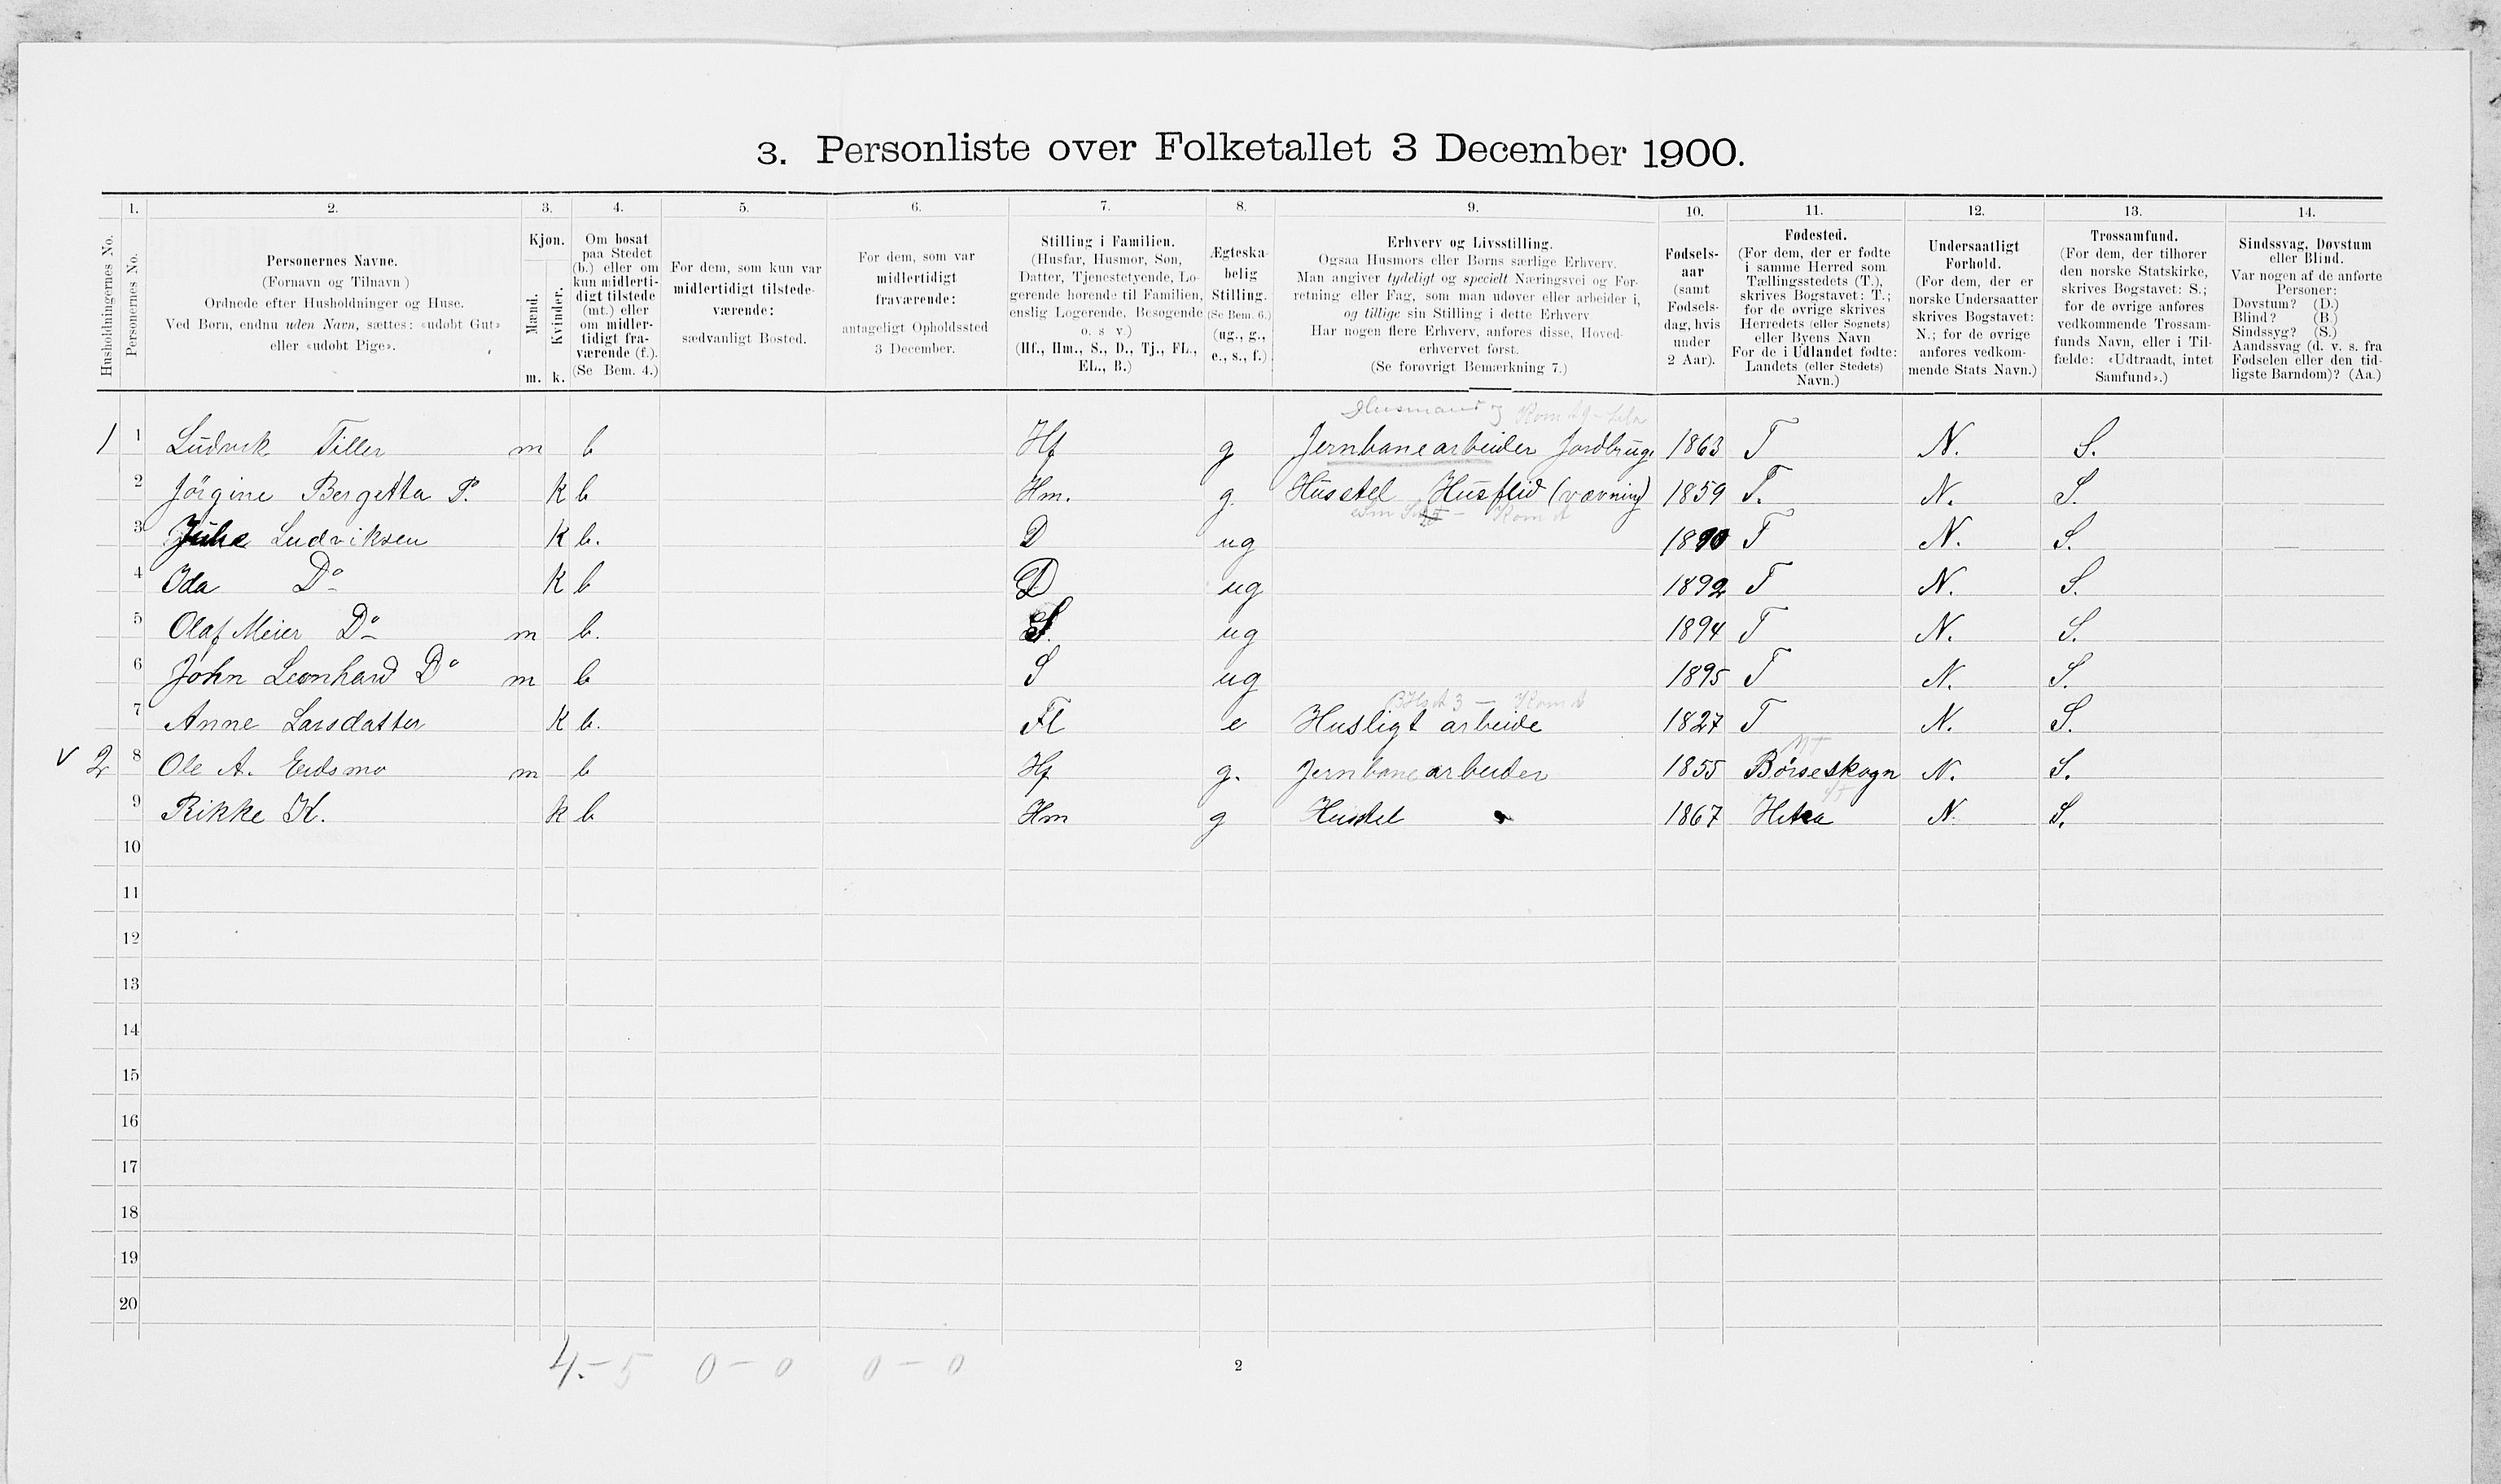 3. Personliste over Folketallet 3 December 1900.
1. 2. 3. 4. 5. 6. 7. 8. 9. 10. 11. 12. 13. 14.
Husholdningernes No.
Personernes No.
Personernes Navne.
(Fornavn og Tilnavn)
Ordnede efter Husholdninger og Huse.
Ved Børn, endnu uden Navn, sættes: «udøbt Gut»
eller «udøbt Pige».
Kjøn.
Mænd.
Kvinder.
m. k.
Om bosat
paa Stedet
(b.) eller om
kun midlerti-
digt tilstede
(mt.) eller
om midler-
tidigt fra-
værende (f.).
(Se Bem. 4.)
For dem, som kun var
midlertidigt tilstede-
værende:
sædvanligt Bosted.
For dem, som var
midlertidigt
fraværende:
antageligt Opholdssted
3 December.
Stilling i Familien.
(Husfar, Husmor, Søn,
Datter, Tjenestetyende, Lo-
gerende hørende til Familien,
enslig Logerende, Besøgende
o. s v.)
(Hf., Hm., S., D., Tj., FL.,
EL., B.)
Ægteska-
belig
Stilling.
(Se Bem. 6.)
(ug., g.,
e., s., f.)
Erhverv og Livsstilling.
Ogsaa Husmors eller Børns særlige Erhverv.
Man angiver tydeligt og specielt Næringsvei og For-
retning eller Fag, som man udøver eller arbeider i,
og tillige sin Stilling i dette Erhverv
Har nogen flere Erhverv, anføres disse, Hoved-
erhvervet først.
(Se forøvrigt Bemærkning 7.)
Fødsels-
aar
(samt
Fødsels-
dag, hvis
under
2 Aar).
Fødested.
(For dem, der er fødte
i samme Herred som
Tællingsstedets (T.),
skrives Bogstavet: T.;
for de øvrige skrives
Herredets (eller Sognets)
eller Byens Navn
For de i Udlandet fødte:
Landets (eller Stedets)
Navn.)
Undersaatligt
Forhold.
(For dem, der er
norske Undersaatter
skrives Bogstavet:
N.; for de øvrige
anføres vedkom-
mende Stats Navn.)
Trossamfund.
(For dem, der tilhører
den norske Statskirke,
skrives Bogstavet: S.;
for de øvrige anføres
vedkommende Trossam-
funds Navn, eller i Til-
fælde: «Udtraadt, intet
Samfund».)
Sindssvag, Døvstum
eller Blind.
Var nogen af de anførte
Personer:
Døvstum? (D.)
Blind? (B.)
Sindssyg? (S.)
Aandssvag (d. v. s. fra
Fødselen eller den tid-
ligste Barndom)? (Aa.)
Husmand og
1 1 Ludvik Tiller m b Hf g Jernbanearbeider Jordbrug 1863 T N. S.
2 Jörgine Bergetta P. K b Hm. g. Husstel Husflid (vævning) 1859 T. N. S.
3 Julie Ludviksen K b. D ug 1890 T N. S.
4 Ida Do K b D ug 1892 T N. S.
5 Olaf Meier Do m b. S. ug 1894 T N. S.
6 John Leonhard Do m b S ug 1895 T N. S.
7 Anne Larsdatter K b. Fl e Husligt arbeide 1827 T N. S.
v 2 8 Ole A. Eidsmo m b Hf g. Jernbanearbeider 1855 Börseskogn N. S.
9 Rikke K. k b Hm g Husstel 1867 Hitra N. S.
10
11
12
13
14
15
16
17
18
19
20
4.- 5 0 - 0 0 - 0
2